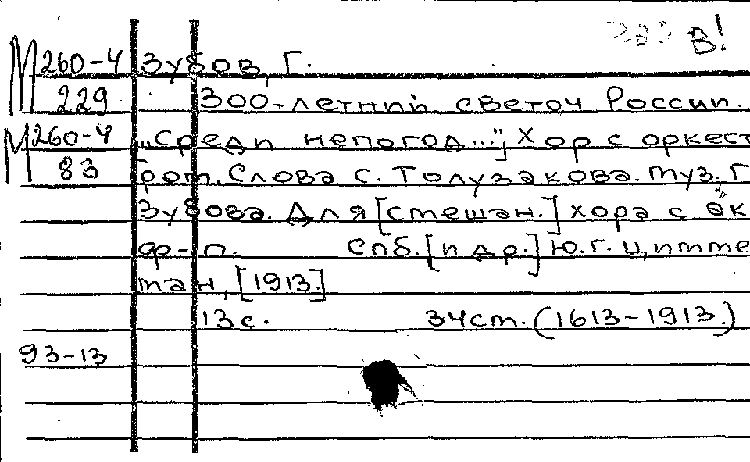 В!
М 260-4 Зубов, Г.
229 300-летний светоч России.
М 260-4 „Среди непогод..."] Хор с оркест
83 ром. Слова С. Толузакова. Муз. Г
Зубова. Для [смешан.] хора с ак
ф-п. Спб. [и др.] Ю.Г. Циммер
ман, [1913.]
13 с. 34 cm. (1613-1913.)
93-13